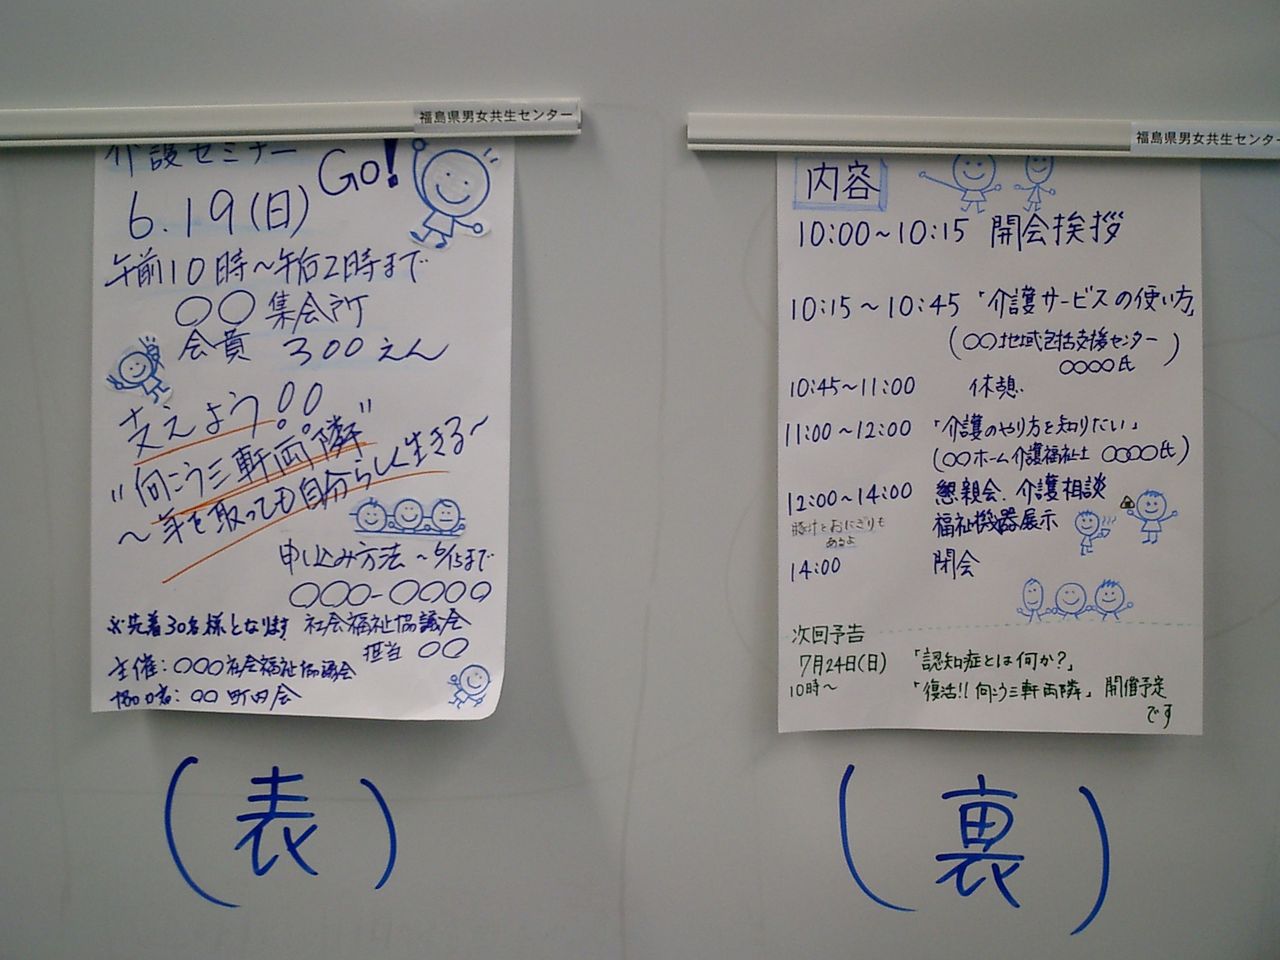 福島県男女共生センター
介護セミナー
Go!
6.19(日)
午前10時～午后2時まで
○○集会所
会費 300えん
支えよう!!
"向こう三軒両隣"
～年を取っても自分らしく生きる～
申し込み方法 ～6/15まで
○○○-○○○○
※先着30名様となります 社会福祉協議会
担当 ○○
主催:○○○社会福祉協議会
協力者:○○町内会
(表)
福島県男女共生センター
内容
10:00～10:15 開会挨拶
10:15～10:45 「介護サービスの使い方」
(○○地域包括支援センター
○○○○氏)
10:45～11:00 休憩
11:00～12:00 「介護のやり方を知りたい」
(○○ホーム介護福祉士 ○○○○氏)
12:00～14:00 懇親会、介護相談
豚汁とおにぎりも 福祉機器展示
あるよ
14:00 閉会
次回予告
7月24日(日) 「認知症とは何か?」
10時～ 「復活!!向こう三軒両隣」 開催予定
です
(裏)